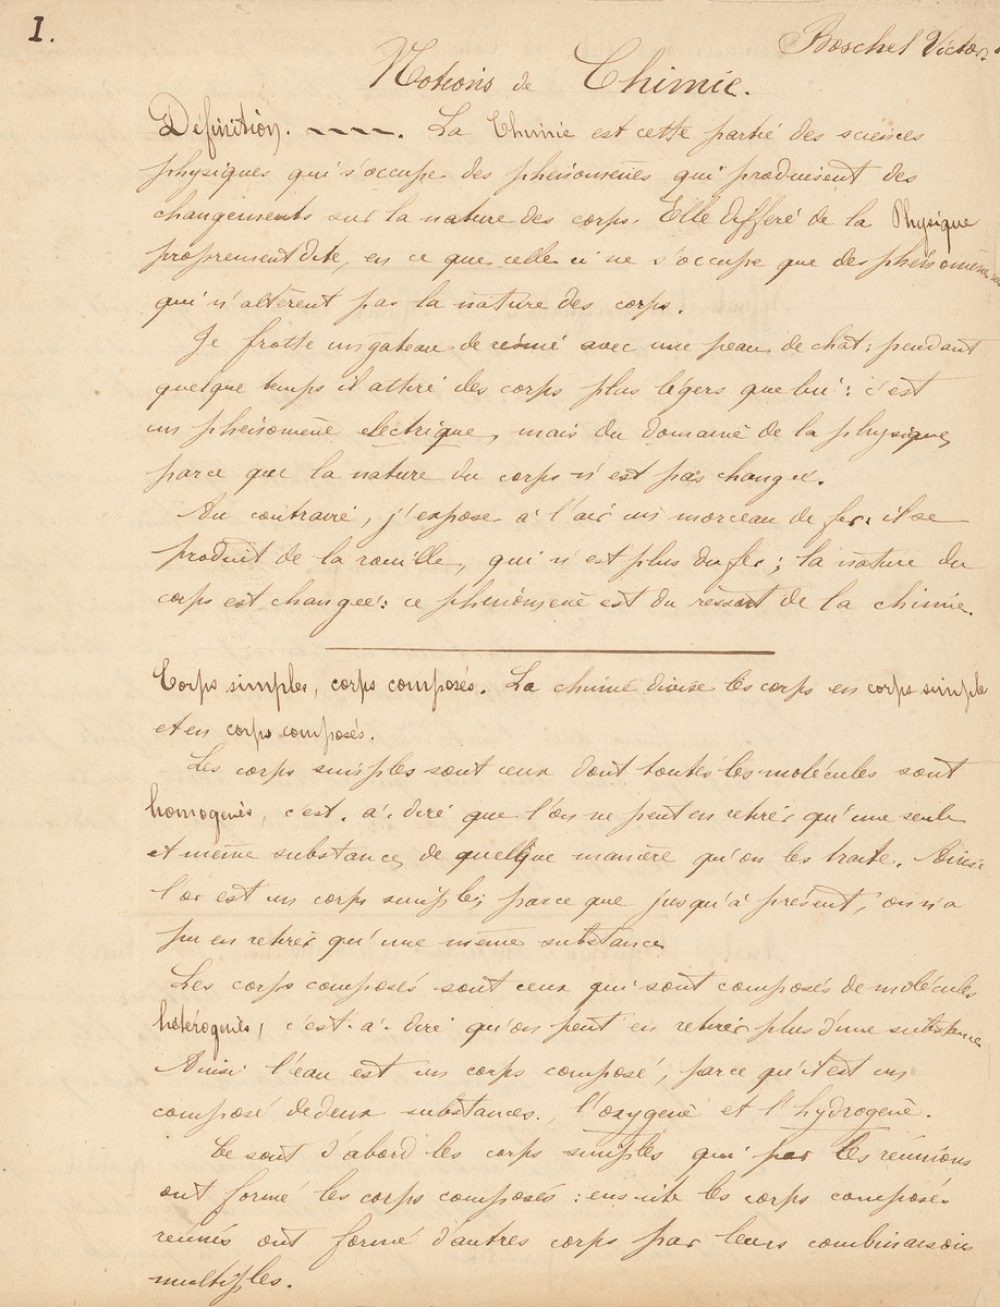 1.
Boschel Victor.
Notions de Chimie.
Définition. ----. La Chimie est cette partie des sciences
physiques qui s'occupe des phénomènes qui produisent des
changements sur la nature des corps. Elle diffère de la Physique
proprement dite, en ce que celle ci ne s'occupe que des phénomènes
qui n'altèrent pas la nature des corps.
Je frotte un gateau de résine avec une peau de chat: pendant
quelque temps il attire des corps plus légers que lui: c'est
un phénomène electrique, mais du domaine de la physique,
parce que la nature du corps n'est pas changée.
Au contraire, j'expose à l'air un morceau de fer: il se
produit de la rouille, qui n'est plus du fer; la nature du
corps est changée: ce phénomène est du ressort de la chimie.
Corps simples, corps composés. La chimie divise les corps en corps simple
et en corps composés.
Les corps simples sont ceux dont toutes les molécules sont
homogènes, c'est-à-dire que l'on ne peut en retirer qu'une seule
et même substance, de quelque manière qu'on les traite. Ainsi
l'or est un corps simple, parce que jusqu'à présent, on n'a
pu en retirer qu'une même substance
Les corps composés sont ceux qui sont composés de molécules
hétérogènes, c'est-à-dire qu'on peut en retirer plus d'une substance
Ainsi l'eau est un corps composé, parce qu'il est un
composé de deux substances, l'oxygène et l'hydrogène.
Ce sont d'abord les corps simples qui par les réunions
ont formé les corps composés: ensuite les corps composés
réunis ont formé d'autres corps par leurs combinaisons
multiples.